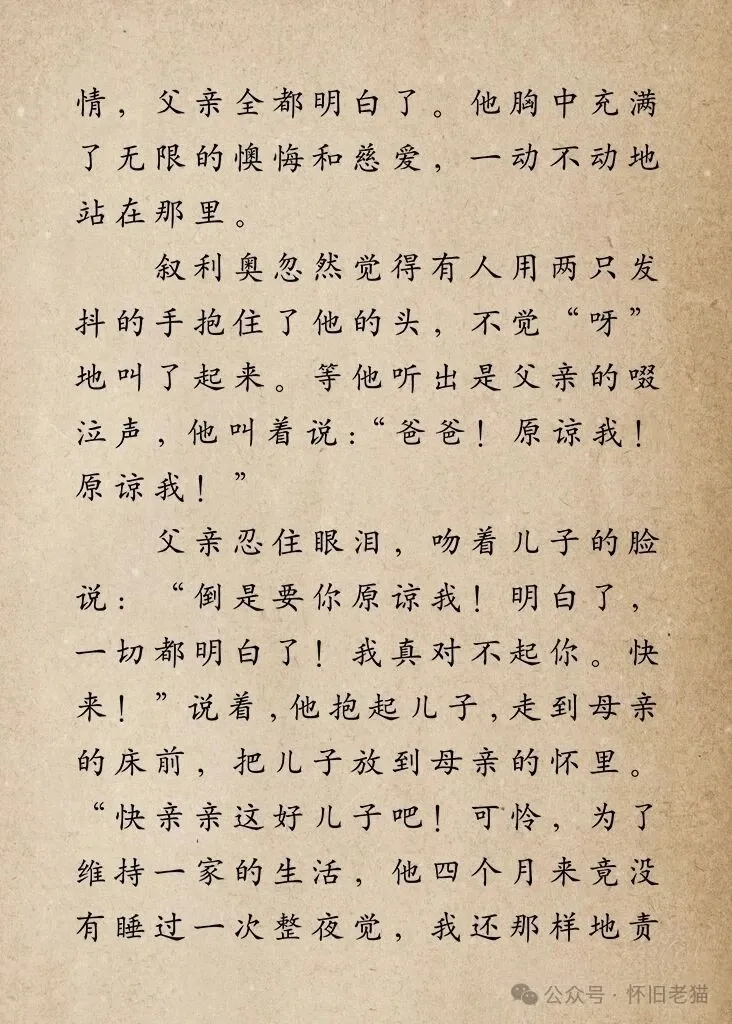 情，父亲全都明白了。他胸中充满
了无限的懊悔和慈爱，一动不动地
站在那里。
叙利奥忽然觉得有人用两只发
抖的手抱住了他的头，不觉“呀”
地叫了起来。等他听出是父亲的啜
泣声，他叫着说：“爸爸！原谅我！
原谅我！”
父亲忍住眼泪，吻着儿子的脸
说：“倒是要你原谅我！明白了，
一切都明白了！我真对不起你。快
来！”说着，他抱起儿子，走到母亲
的床前，把儿子放到母亲的怀里。
“快亲亲这好儿子吧！可怜，为了
维持一家的生活，他四个月来竟没
有睡过一次整夜觉，我还那样地责
公众号·怀旧老猫